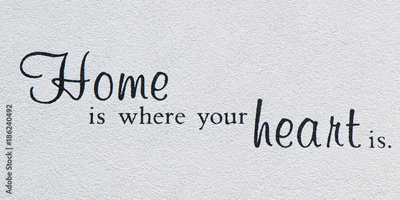 Home
is where your
heart is.
Adobe Stock | #186240492